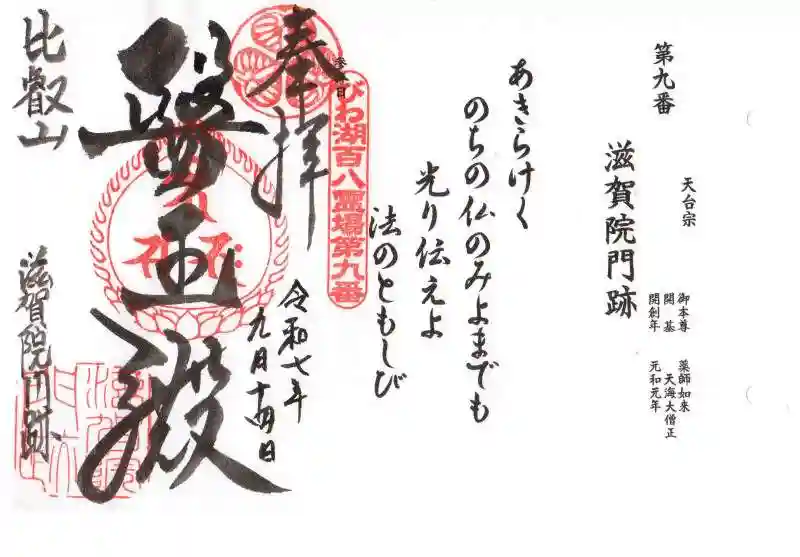 第九番
滋賀院門跡
天台宗
御本尊 薬師如来
開基 天海大僧正
開創年 元和元年
あきらけく
のちの仏のみよまでも
光り伝えよ
法のともしび
びわ湖百八霊場第九番
参拝日
奉拝
令和七年
九月十四日
醫王殿
比叡山
滋賀院門跡